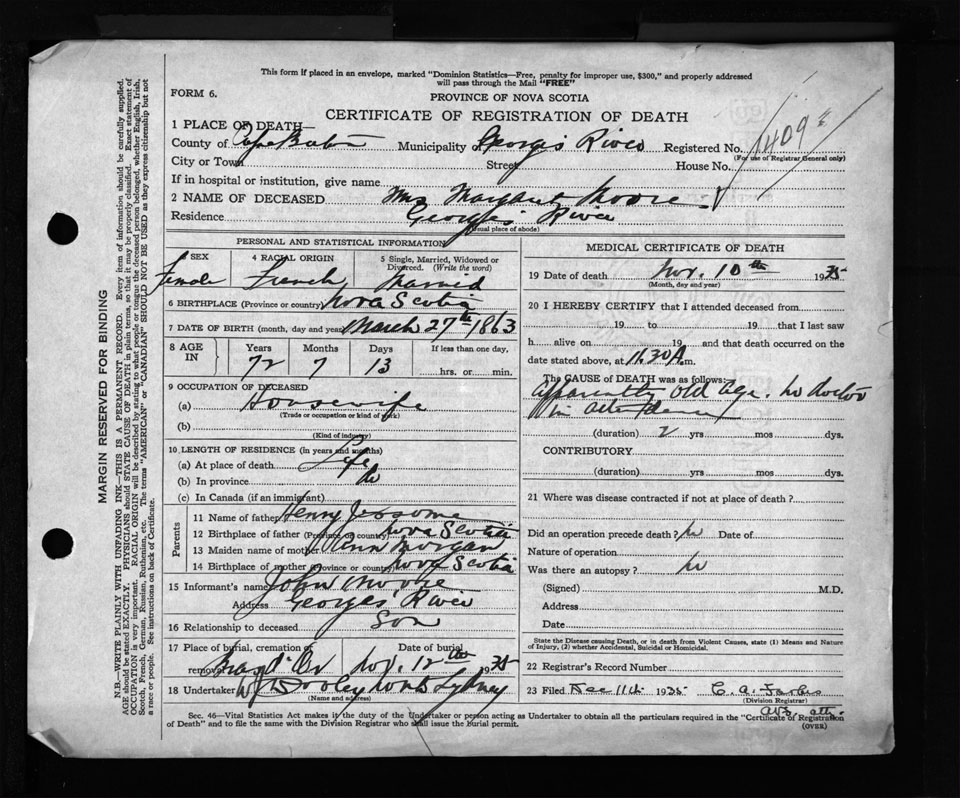 This form if placed in an envelope, marked "Dominion Statistics—Free, penalty for improper use, $300," and properly addressed
will pass through the Mail "FREE"
FORM 6.
PROVINCE OF NOVA SCOTIA
CERTIFICATE OF REGISTRATION OF DEATH
1409
1 PLACE OF DEATH—
County of Cape Breton Municipality of Georges River Registered No.
(For use of Registrar General only)
City or Town Street House No.
If in hospital or institution, give name
2 NAME OF DECEASED Mrs Margaret Moore
Residence Georges' River
(Usual place of abode)
PERSONAL AND STATISTICAL INFORMATION
SEX Female
4 RACIAL ORIGIN French
5 Single, Married, Widowed or Divorced. (Write the word) Married
6 BIRTHPLACE (Province or country) Nova Scotia
7 DATE OF BIRTH (month, day and year) March 27th 1863
8 AGE IN Years Months Days If less than one day,
72 7 13 hrs. or min.
9 OCCUPATION OF DECEASED
(a) Housewife
(Trade or occupation or kind of work)
(b)
(Kind of industry)
10 LENGTH OF RESIDENCE (in years and months)
(a) At place of death Life
(b) In province Do
(c) In Canada (if an immigrant)
Parents
11 Name of father Henry Jessome
12 Birthplace of father (Province or country) Nova Scotia
13 Maiden name of mother Ann Morgan
14 Birthplace of mother (Province or country) Nova Scotia
15 Informant's name John Moore
Address Georges' River
16 Relationship to deceased Son
17 Place of burial, cremation or removal Date of burial
Nov. 12th 1935
18 Undertaker North Sydney
(Name and address)
MEDICAL CERTIFICATE OF DEATH
19 Date of death Nov. 10th 1935
(Month, day and year)
20 I HEREBY CERTIFY that I attended deceased from
19 to 19 that I last saw
h alive on 19 and that death occurred on the
date stated above, at 11.30 A.m.
The CAUSE of DEATH was as follows:
apparently old age. no doctor
in attendance
(duration) 2 yrs mos dys.
CONTRIBUTORY
(duration) yrs. mos. dys.
21 Where was disease contracted if not at place of death?
Did an operation precede death? no Date of
Nature of operation
Was there an autopsy? no
(Signed) M.D.
Address
Date
State the Disease causing Death, or in death from Violent Causes, state (1) Means and Nature
of Injury, (2) whether Accidental, Suicidal or Homicidal.
22 Registrar's Record Number
23 Filed Dec 11th 1935 C. A.
(Division Registrar)
Sec. 46—Vital Statistics Act makes it the duty of the Undertaker or person acting as Undertaker to obtain all the particulars required in the "Certificate of Registration
of Death" and to file the same with the Division Registrar who shall issue the burial permit.
(OVER)
MARGIN RESERVED FOR BINDING
N.B.—WRITE PLAINLY WITH UNFADING INK—THIS IS A PERMANENT RECORD. Every item of information should be carefully supplied.
AGE should be stated EXACTLY. PHYSICIANS should STATE CAUSE OF DEATH in plain terms, so that it may be properly classified. Exact statement of
OCCUPATION is very important. RACIAL ORIGIN will be described by stating to what people or tongue the deceased person belonged, whether English, Irish,
Scotch, French, German, Russian, Ruthenian, etc. The terms "AMERICAN" or "CANADIAN" SHOULD NOT BE USED as they express citizenship but not
a race or people. See instructions on back of Certificate.